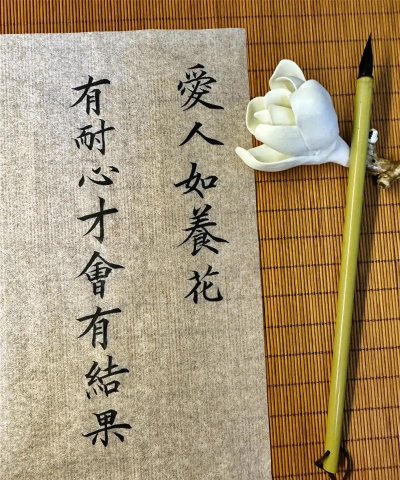 愛人如養花
有耐心才會有結果